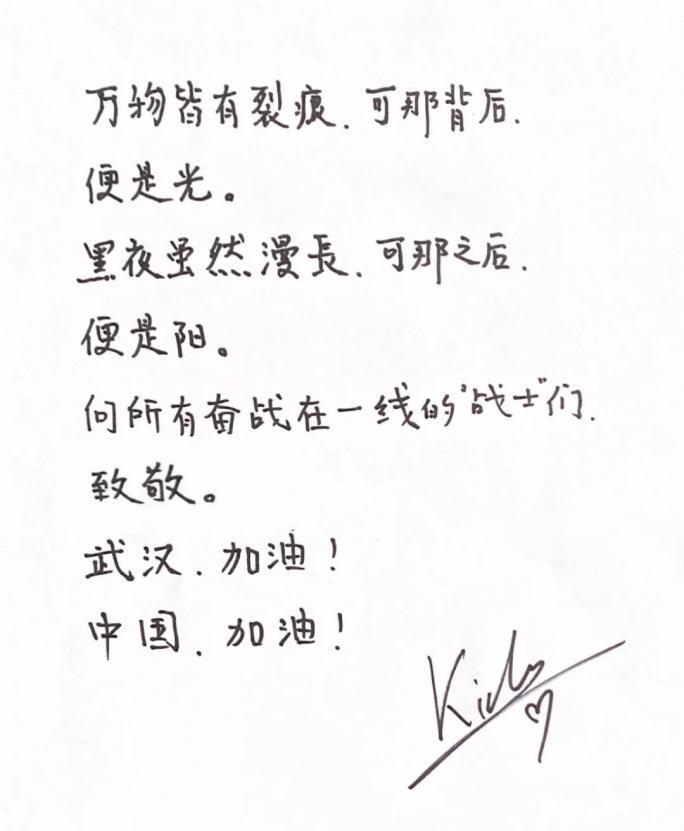 万物皆有裂痕、可那背后、
便是光。
黑夜虽然漫長、可那之后、
便是阳。
向所有奋战在一线的“战士”们、
致敬。
武汉、加油！
中国、加油！